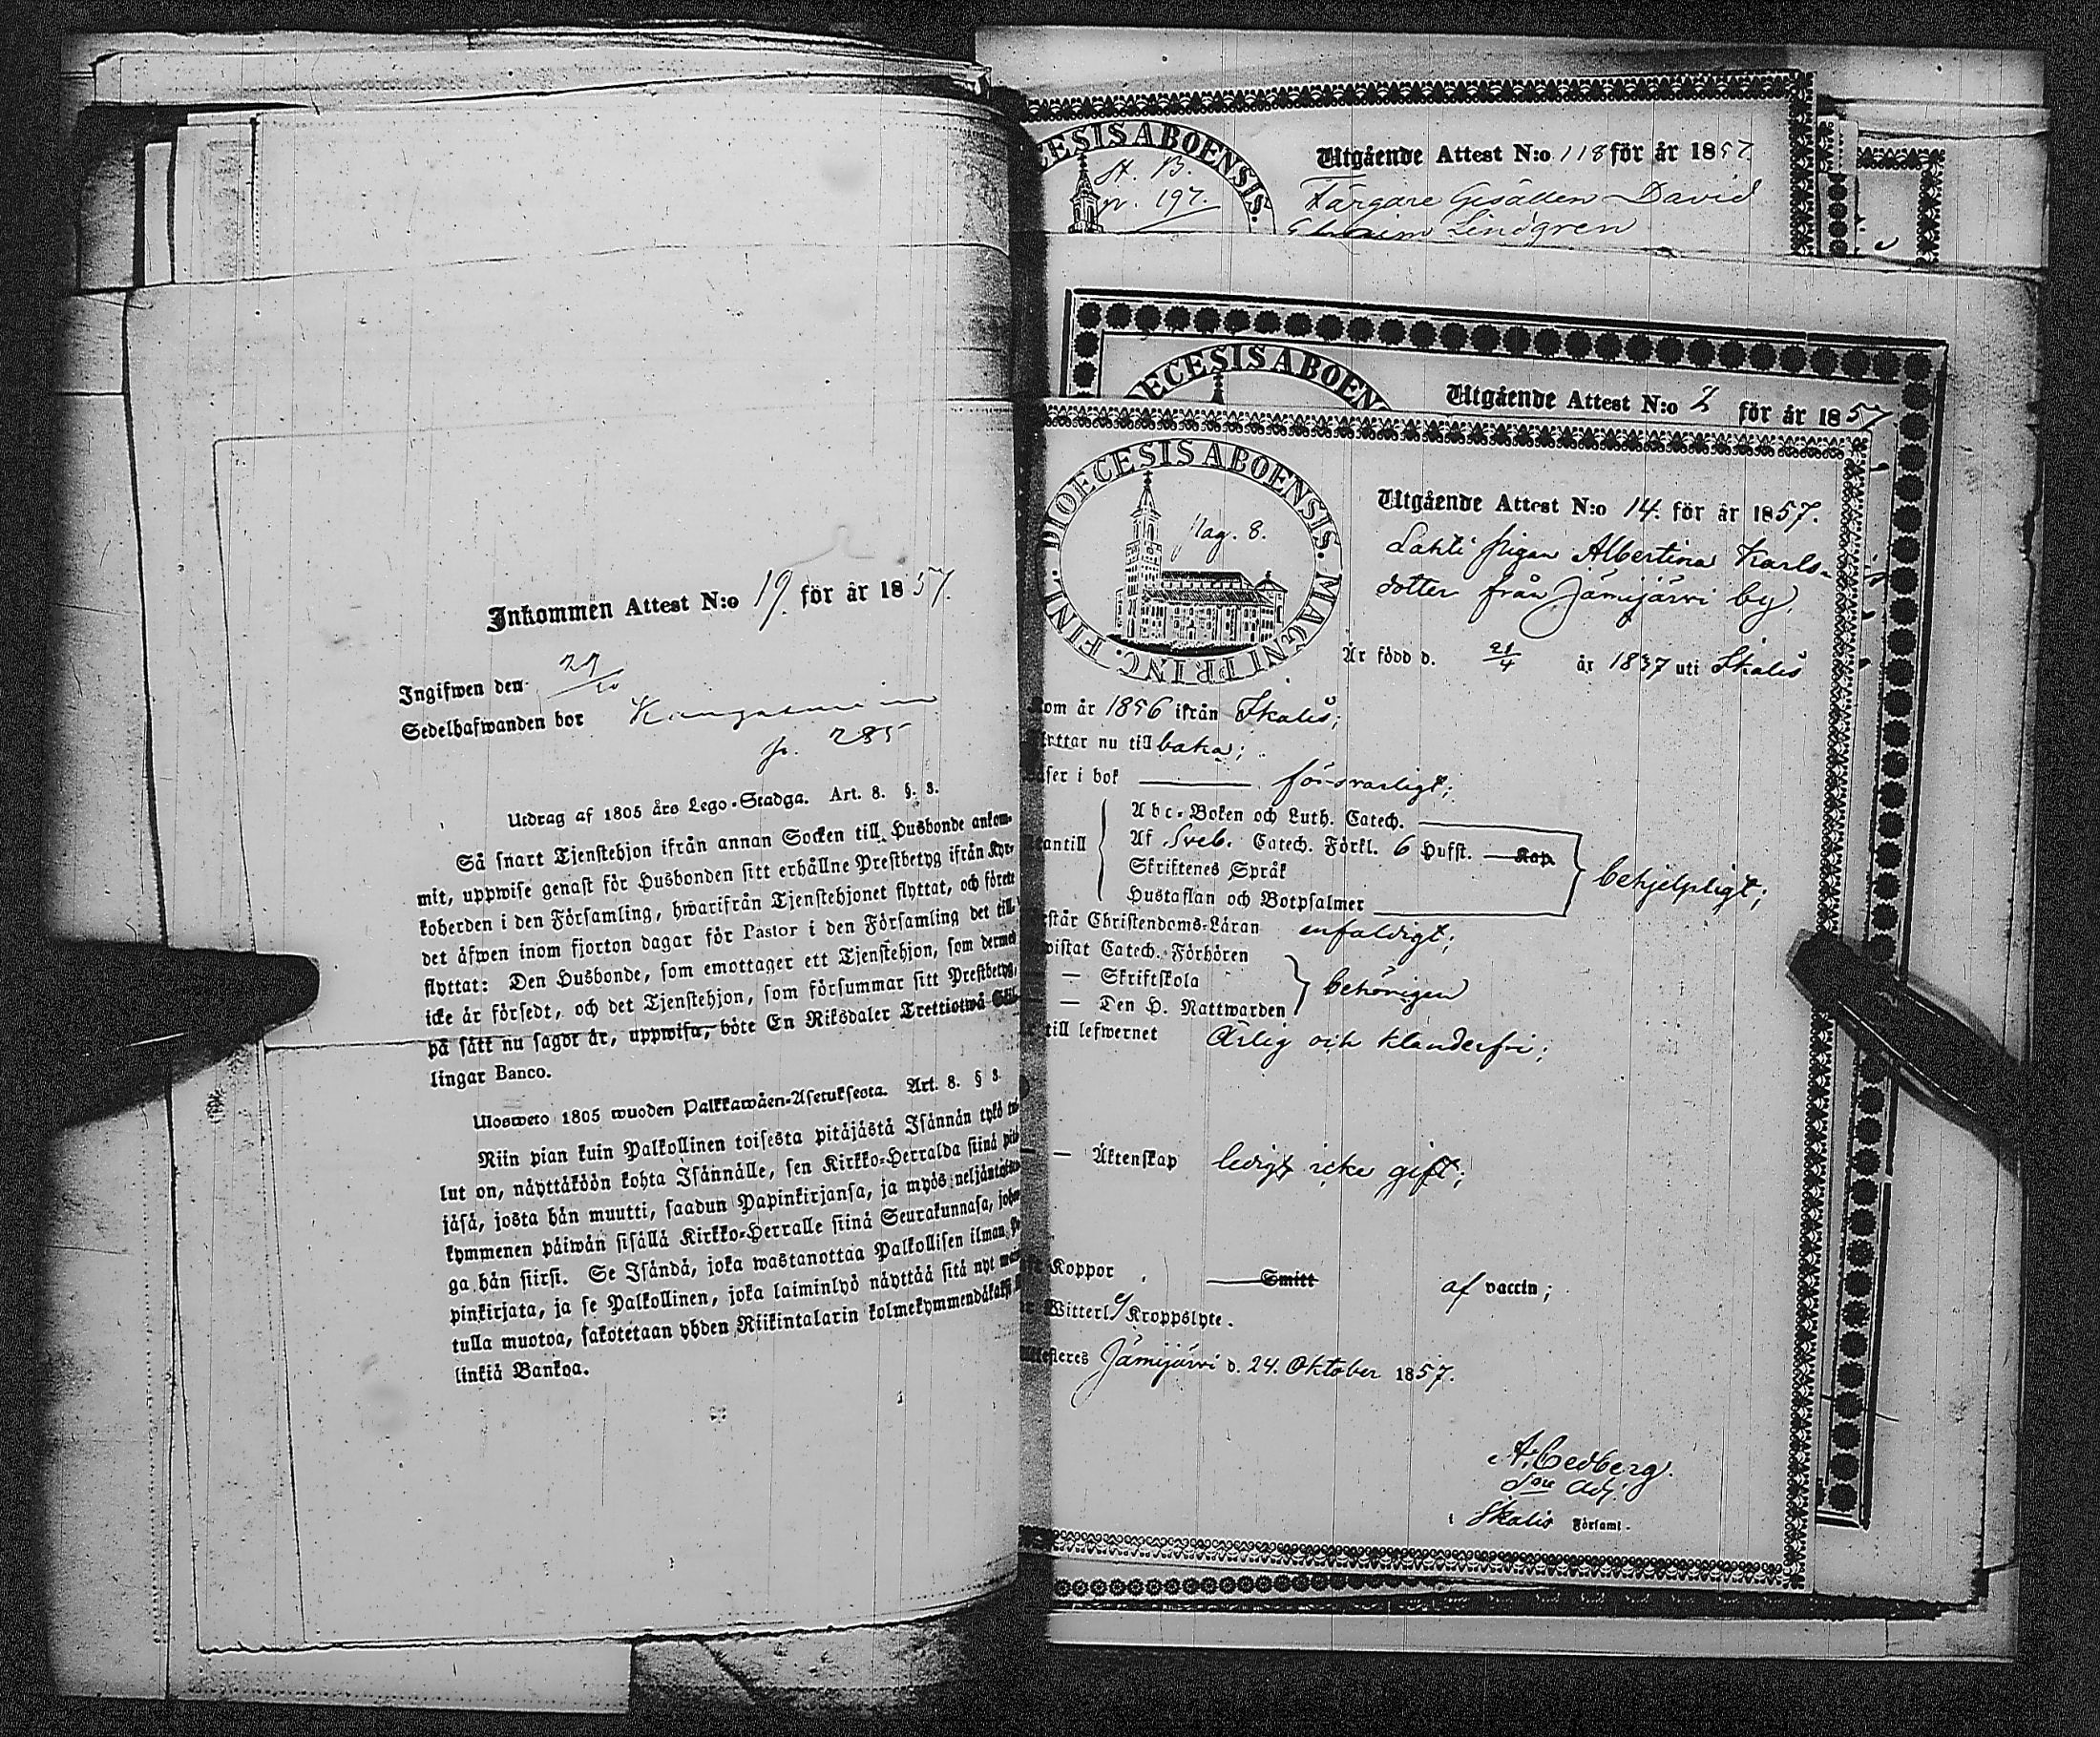 Inkommen Attest N:o 19. för år 1857.
Ingifwen den 27/10
Sedelhafwanden bor
p. 285
Utdrag af 1805 års Lego-Stadga. Art. 8. §. 8.
Så snart Tjenstehjon ifrån annan Socken till Husbonde ankom-
mit, uppwise genast för Husbonden sitt erhållne Prestbetyg ifrån Kyr-
koherden i den Församling, hwarifrån Tjenstehjonet flyttat, och förete
det äfwen inom fjorton dagar för Pastor i den Församling det till-
flyttat: Den Husbonde, som emottager ett Tjenstehjon, som dermed
icke är försedt, och det Tjenstehjon, som försummar sitt Prestbetyg,
på sätt nu sagdt är, uppwisa, böte En Riksdaler Trettiotwå Skil-
lingar Banco.
Ulosweto 1805 wuoden Palkkawäen-Asetuksesta. Art. 8. § 8.
Niin pian kuin Palkollinen toisesta pitäjästä Isännän tykö tul-
lut on, näyttäköön kohta Isännälle, sen Kirkko-Herralda siinä pitä-
jäsä, josta hän muutti, saadun Papinkirjansa, ja myös neljäntoista-
kymmenen päiwän sisällä Kirkko-Herralle siinä Seurakunnasa, johon-
ga hän siirsi. Se Isändä, joka wastanottaa Palkollisen ilman Pa-
pinkirjata, ja se Palkollinen, joka laiminlyö näyttää sitä nyt mai-
tulla muotoa, sakotetaan yhden Riikintalarin kolmekymmendäkaksi
linkiä Bankoa.
ECESIS ABOENSIS.
St. B.
p. 197.
Utgående Attest N:o 118 för år 1857
Färgare Gesällen David
Lindgren
OECESIS ABOEN
Utgående Attest N:o 2 för år 1857
DIOECESIS ABOENSIS. MAGNI PRINC. FINL.
Pag. 8.
Utgående Attest N:o 14. för år 1857.
Lahti pigan Albertina Karls-
dotter från Jämijärwi by.
Är född d. 21/4 år 1837 uti Ikalis
kom år 1856 ifrån Ikalis;
flyttar nu till baka;
läser i bok försvarligt;
utantill
Abc-Boken och Luth. Catech.
Af Sveb. Catech. Förkl. 6 Hufst. Kap.
Skriftenes Språk
Hustaflan och Botpsalmer
behjelpligt;
förstår Christendoms-Läran enfaldigt;
bewistat Catech. Förhören
— Skriftskola
— Den H. Nattwarden
behörigen
till lefwernet Ärlig och klanderfri;
— Äktenskap ledigt icke gift;
Koppor Smitt af vaccin;
Witterl. Kroppslyte.
Attesteres Jämijärwi d. 24. Oktober 1857.
A. Cedberg.
Adj.
i Ikalis Församl.